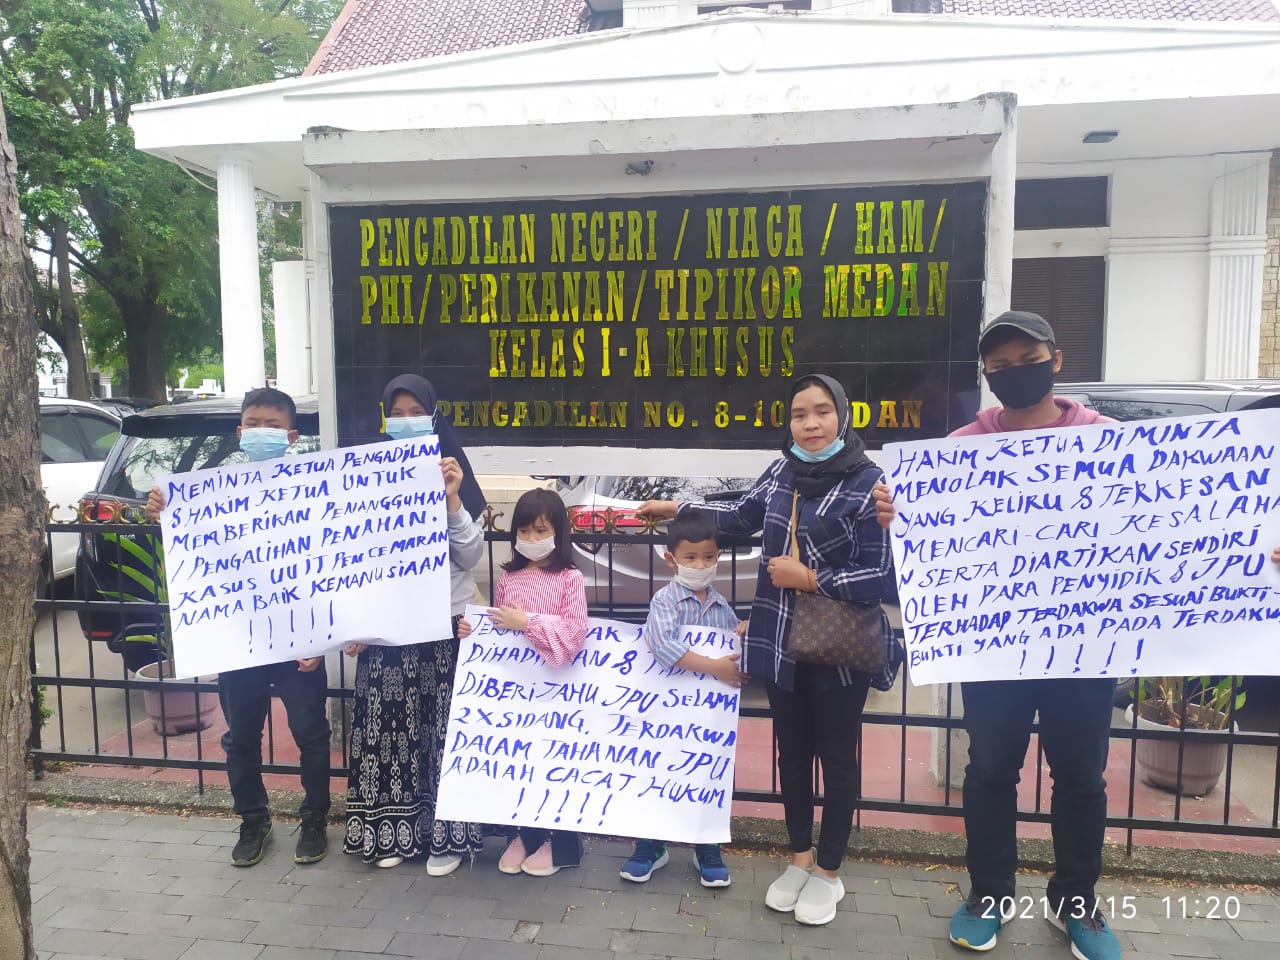 PENGADILAN NEGERI / NIAGA / HAM/
PHI/PERIKANAN/TIPIKOR MEDAN
KELAS I-A KHUSUS
PENGADILAN NO. 8-10
MEMINTA KETUA PENGADILAN
& HAKIM KETUA UNTUK
MEMBERIKAN PENANGGUHAN
/PENGALIHAN PENAHAN.
KASUS UU IT PENCEMARAN
NAMA BAIK KEMANUSIAAN
!!!!!
DIBERITAHU JPU SELAMA
2XSIDANG. TERDAKWA
DALAM TAHANAN JPU
ADALAH CACAT HUKUM
!!!!!
HAKIM KETUA DIMINTA
MENOLAK SEMUA DAKWAAN
YANG KELIRU & TERKESAN
MENCARI-CARI KESALAHA
N SERTA DIARTIKAN SENDIRI
OLEH PARA PENYIDIK & JPU
TERHADAP TERDAKWA SESUAI BUKTI-
BUKTI YANG ADA PADA TERDAKWA
!!!!!
2021/3/15 11:20